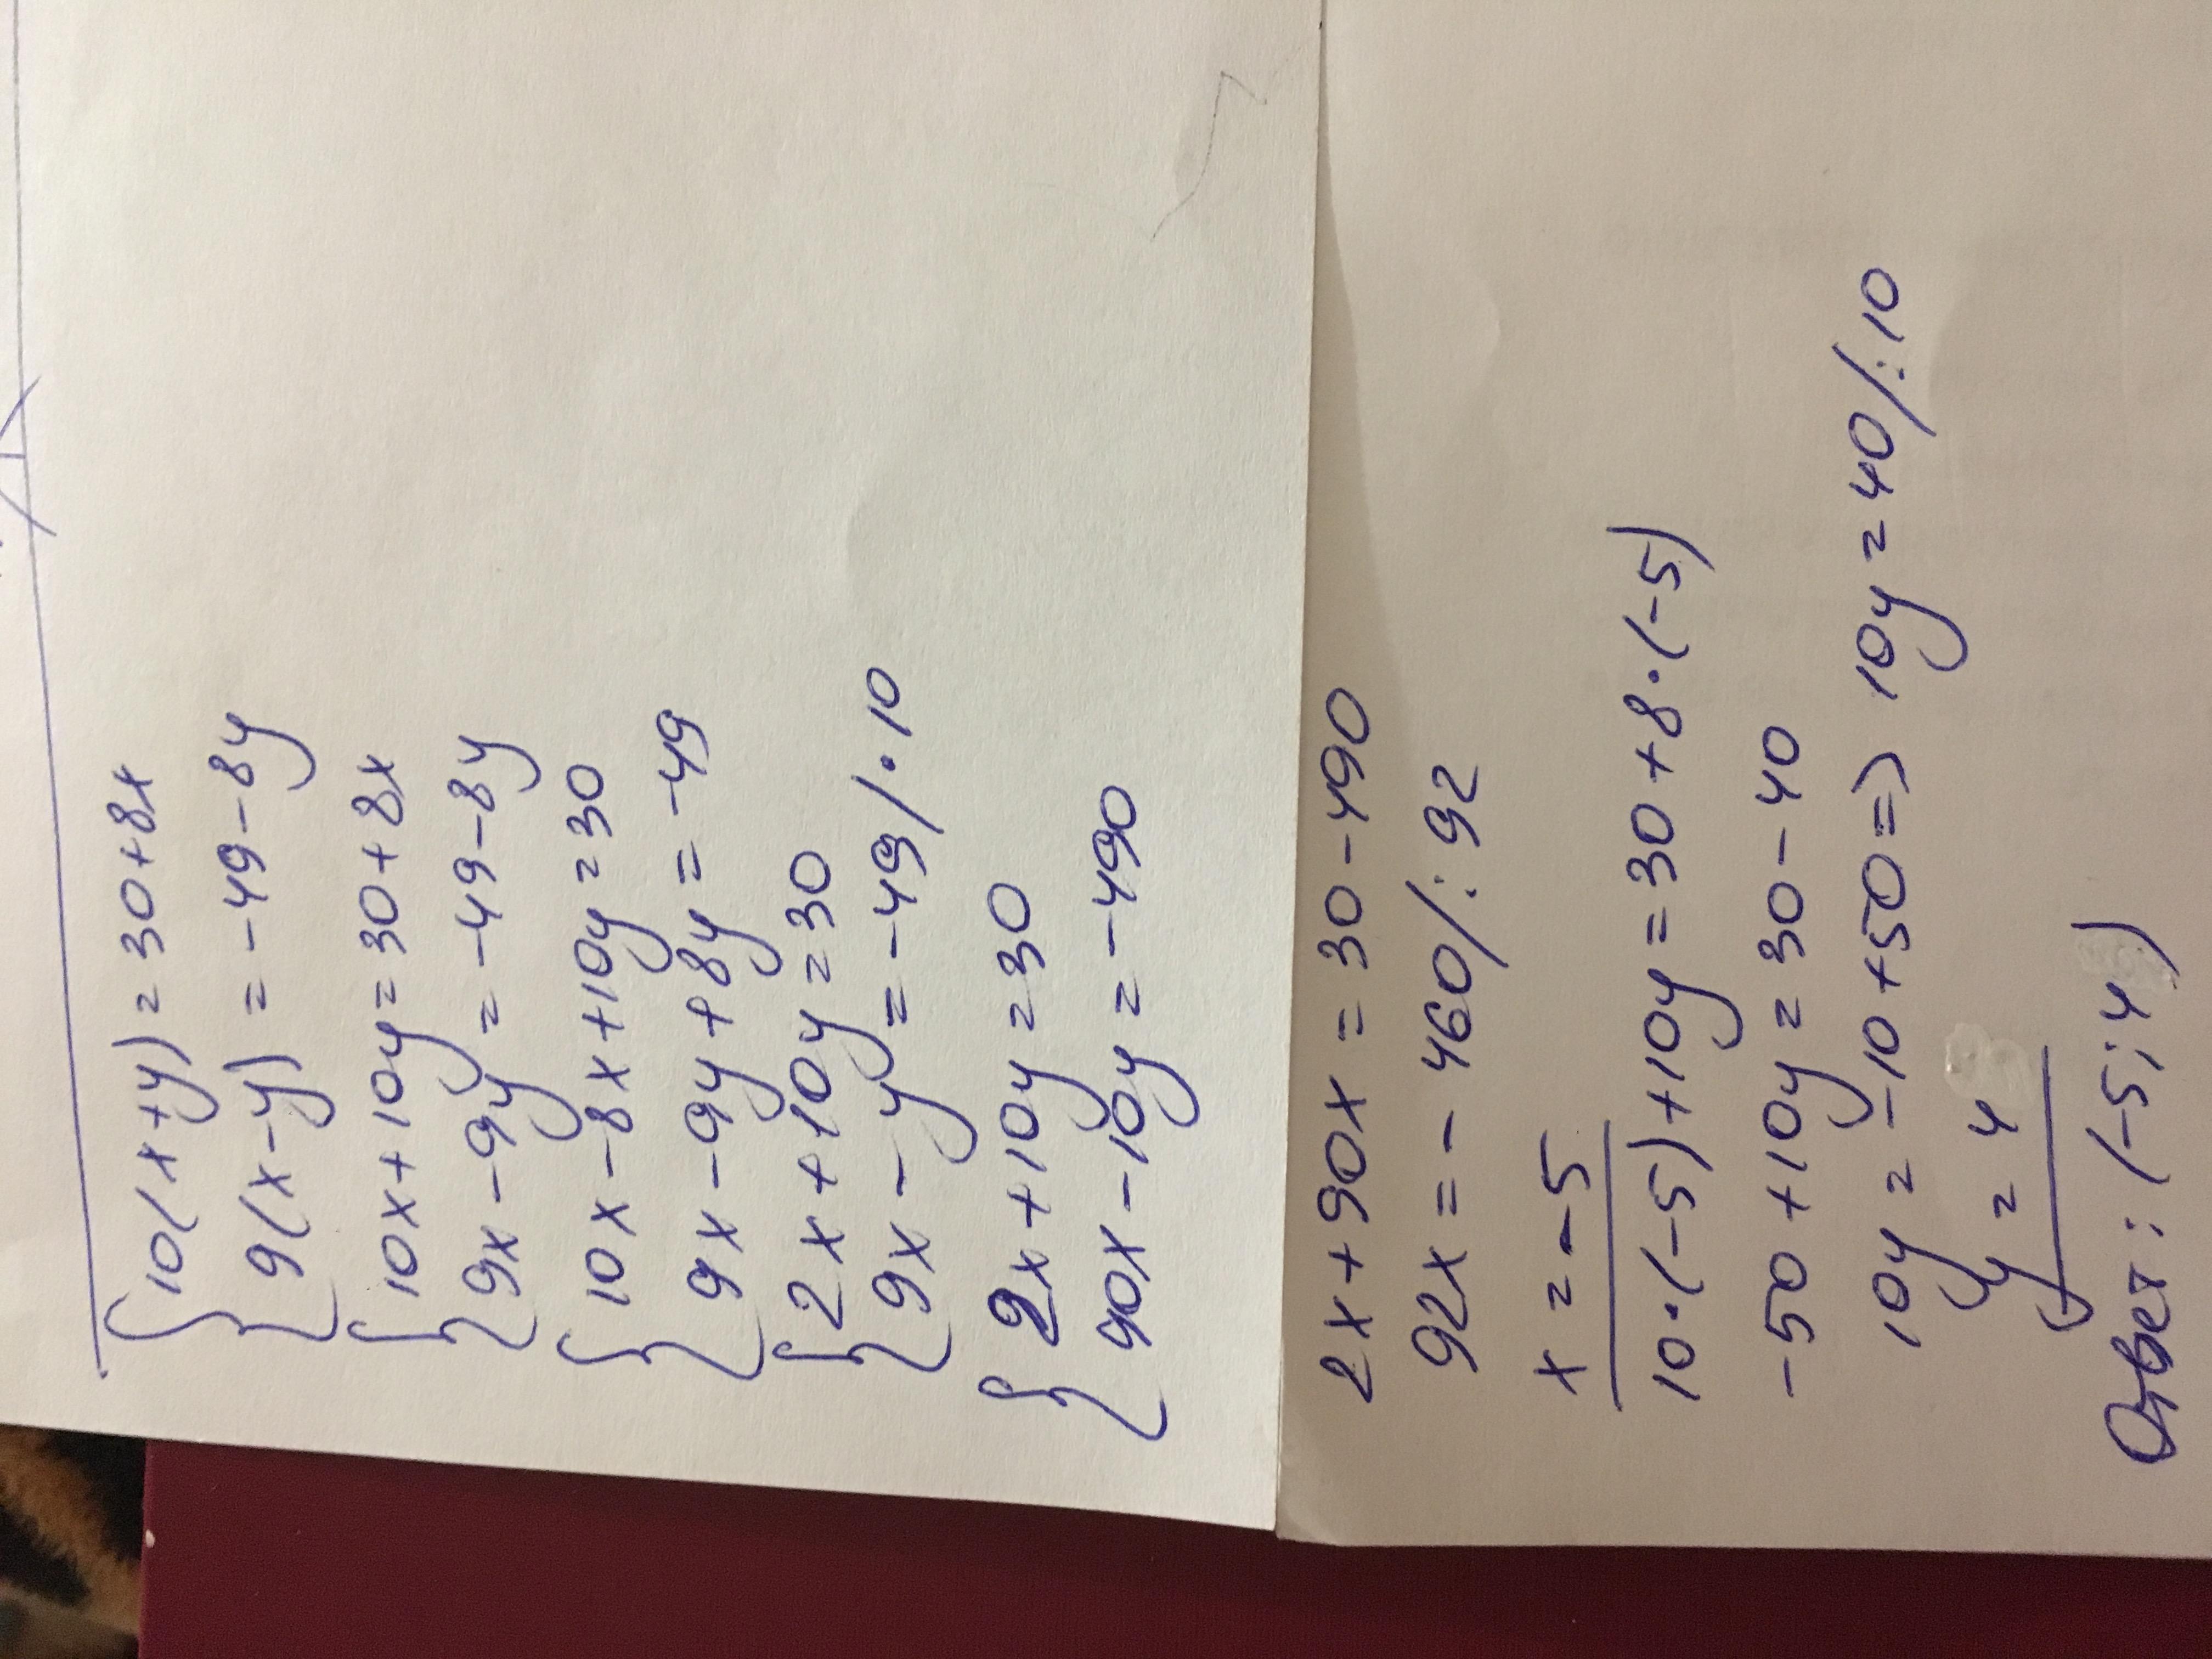 10(x+y)=30+8x
9(x-y)=-49-8y
10x+10y=30+8x
9x-9y=-49-8y
10x-8x+10y=30
9x-9y+8y=-49
2x+10y=30
9x-y=-49/·10
2x+10y=30
90x-10y=-490
2x+90x=30-490
92x=-460/:92
x=-5
10·(-5)+10y=30+8·(-5)
-50+10y=30-40
10y=-10+50=>10y=40/:10
y=4
Ответ:(-5;4)